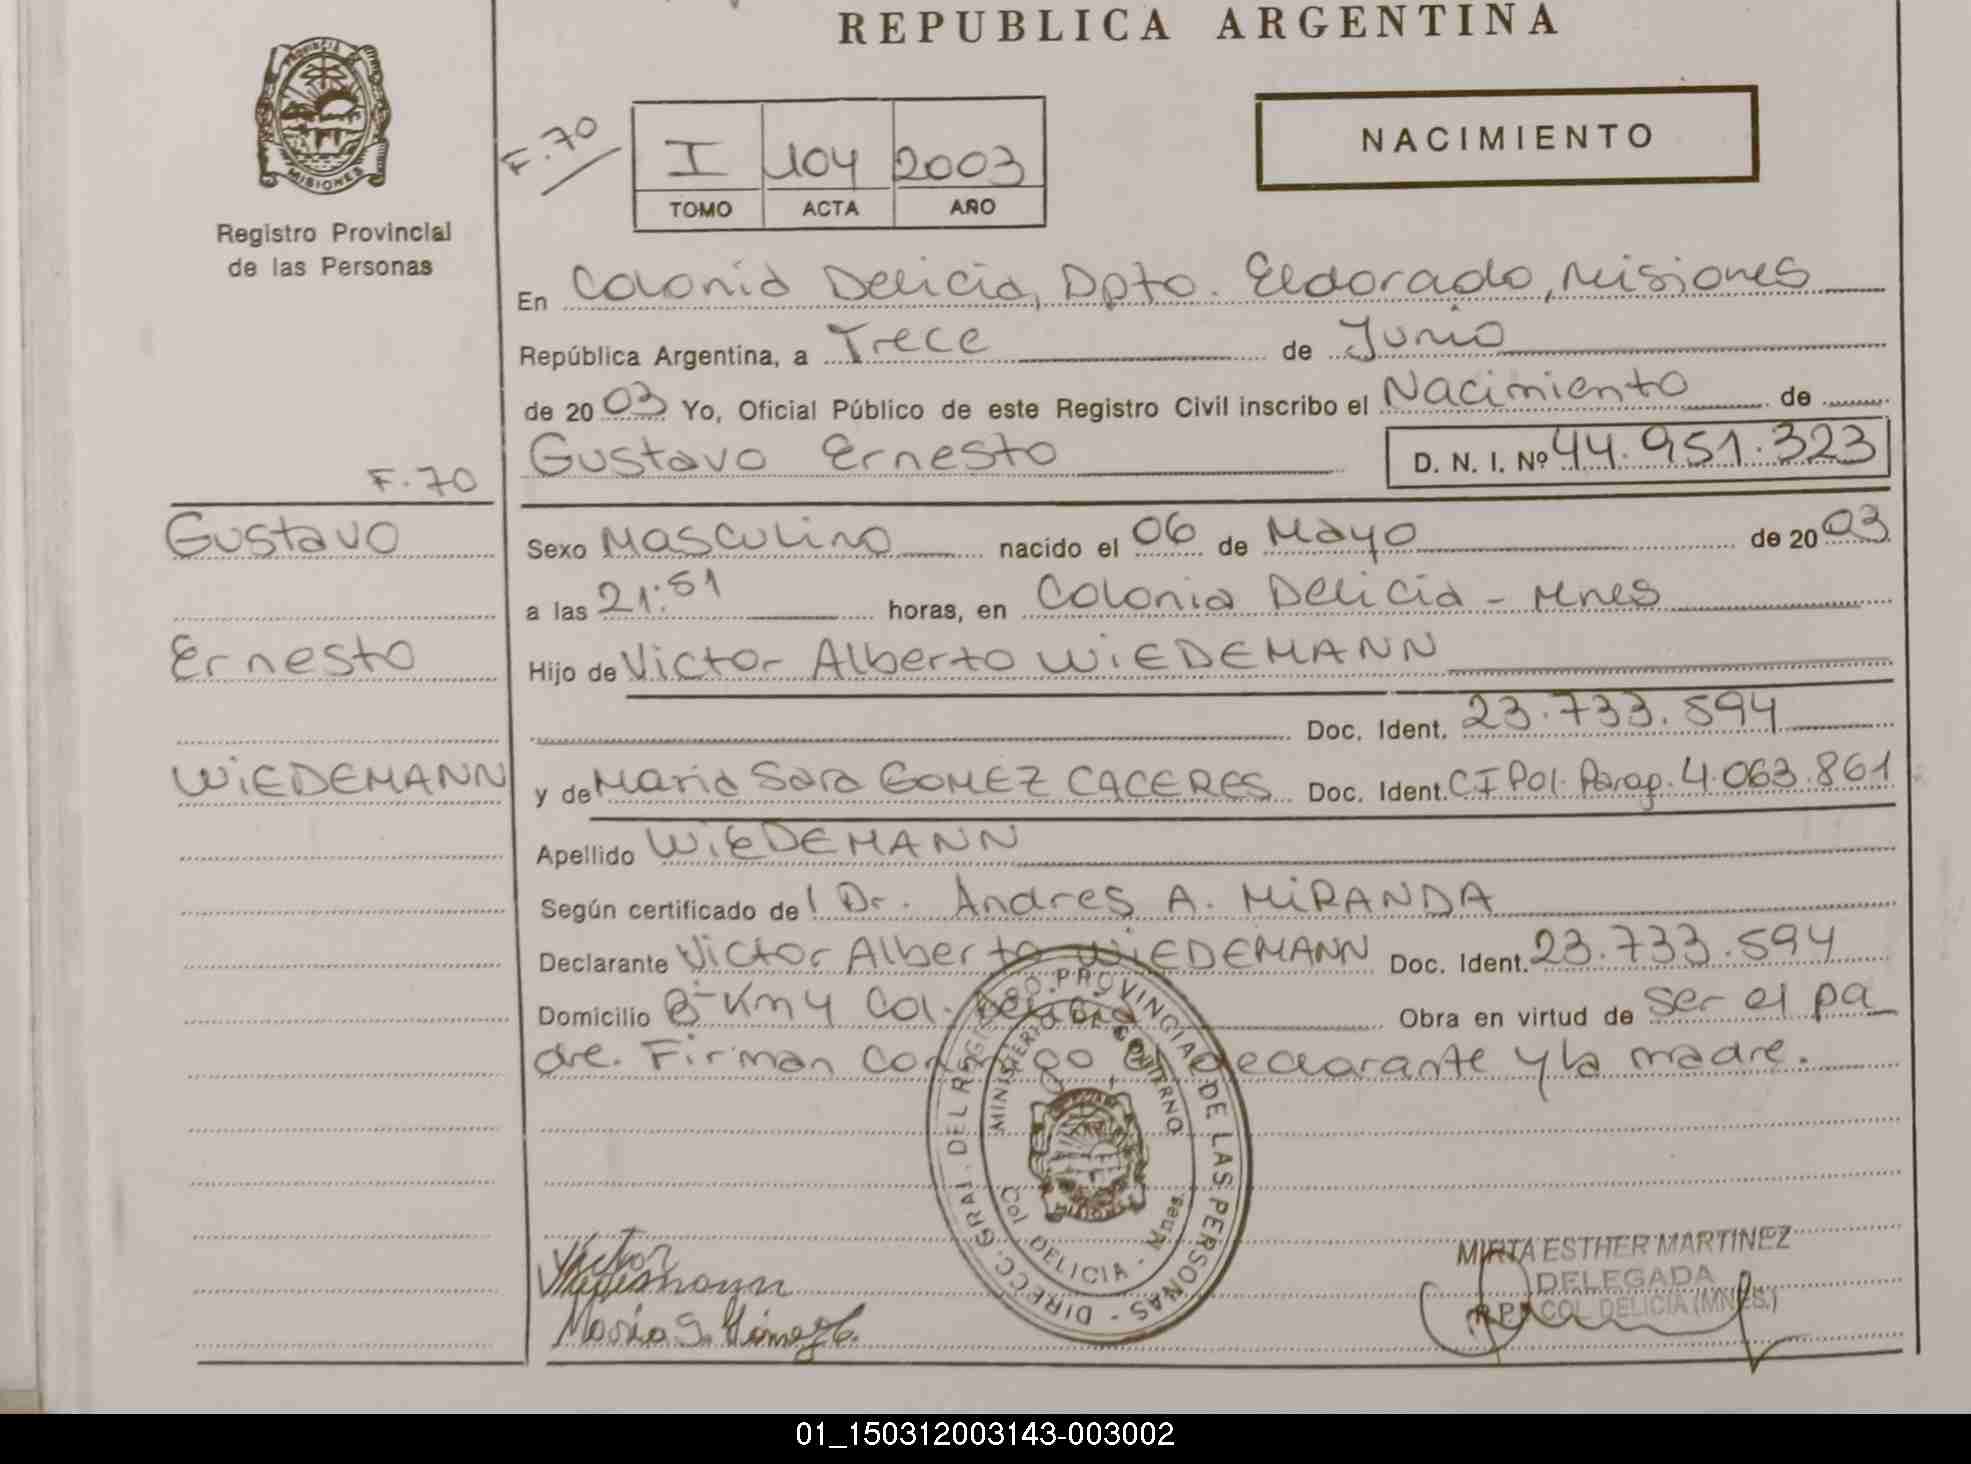 REPUBLICA ARGENTINA
PROVINCIA DE
MISIONES
Registro Provincial
de las Personas
F.70
I 104 2003
TOMO ACTA AÑO
NACIMIENTO
En Colonia Delicia, Dpto. Eldorado, Misiones
República Argentina, a Trece de Junio
de 2003 Yo, Oficial Público de este Registro Civil inscribo el Nacimiento de
Gustavo Ernesto D. N. I. Nº 44.951.323
F.70
Gustavo
Ernesto
WIEDEMANN
Sexo Masculino nacido el 06 de Mayo de 2003
a las 21:51 horas, en Colonia Delicia - Mnes
Hijo de Victor Alberto WIEDEMANN
Doc. Ident. 23.733.594
y de Maria Sara GOMEZ CACERES Doc. Ident. CI Pol. Parag. 4.063.861
Apellido WIEDEMANN
Según certificado del Dr. Andres A. MIRANDA
Declarante Victor Alberto WIEDEMANN Doc. Ident. 23.733.594
Domicilio B-Km 4 Col. Delicia Obra en virtud de ser el pa
dre. Firman conmigo el declarante y la madre.
DIRECC. GRAL. DEL REGISTRO PROVINCIAL DE LAS PERSONAS
MINISTERIO DE GOBIERNO
Col DELICIA - Mnes
Victor
Wiedemann
Maria S. Gómez C.
MIRTA ESTHER MARTINEZ
DELEGADA
R.P.P. COL. DELICIA (MNES.)
01_150312003143-003002